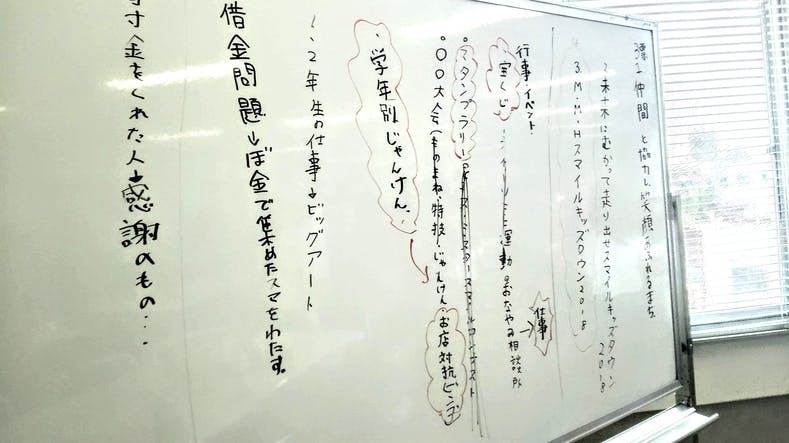 仲間と協力し、笑顔あふれるまち。
2 未来にむかって走り出せスマイルキッズタウン2018
3. M・M・Hスマイルキッズタウン2018
行事・イベント
・宝くじ
運動
おなやみ相談所
→仕事
・スタンプラリー
ミスタースマイルコンテスト
・〇〇大会(ものまね、特技、じゃんけん、お店対抗ビンゴ
・学年別じゃんけん
1、2年生の仕事→ビッグアート
借金問題→ぼ金で集めたスマをわたす。
金をくれた人→感謝のもの・・・